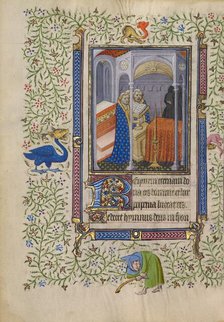 Requiem eternam do
na eis domine et lux
perpetua luceat eis
Te decet hymnus deus in syon